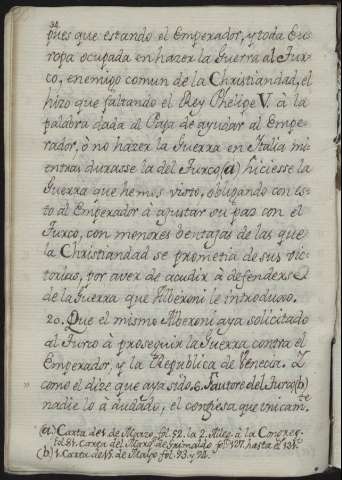 32
pues que estando el Emperador, y toda Eu-
ropa ocupada en hazer la Guerra al Tur-
co, enemigo comun de la Christiandad, el
hizo que faltando el Rey Phelipe V. à la
palabra dada al Papa de ayudar al Empe-
rador, ò no hazer la Guerra en Italia mi-
entras durasse la del Turco, (a) hiciesse la
Guerra que hemos visto, obligando con es-
to al Emperador à ajustar su paz con el
Turco, con menores bentajas de las que
la Christiandad se prometia de sus vic-
torias, por aver de acudir à defenderse
de la Guerra que Alberoni le introduxo.
20. Que el mismo Alberoni aya solicitado
al Turco à proseguir la Guerra contra el
Emperador, y la Republica de Venecia. Y
como el dize que aya sido fautore del Turco, (b)
nadie lo à dudado, el confiesa que unicam.te
(a) Carta de 1. de Marzo fol. 52. la 2. Alleg. à la Congreg.
fol. 81. Carta del Marq. de Grimaldo fol. 127. hasta el 131.
(b) 1. Carta de 15. de Mayo fol. 93. y 94.